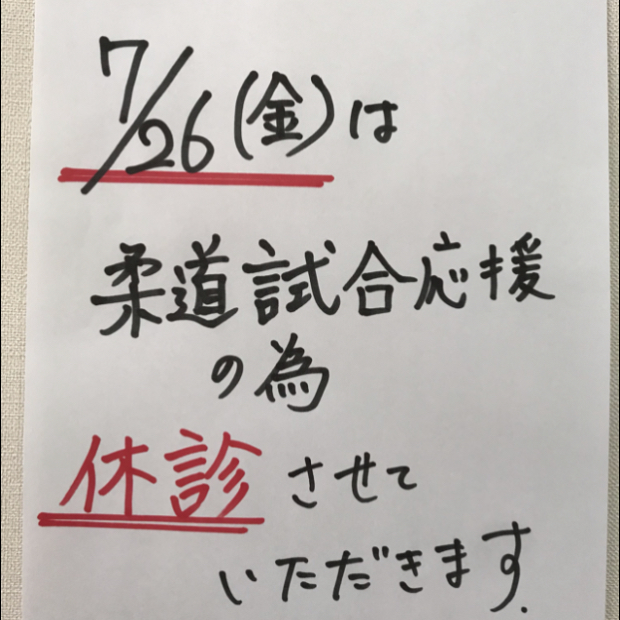 7/26(金)は
柔道試合応援
の為
休診させて
いただきます.